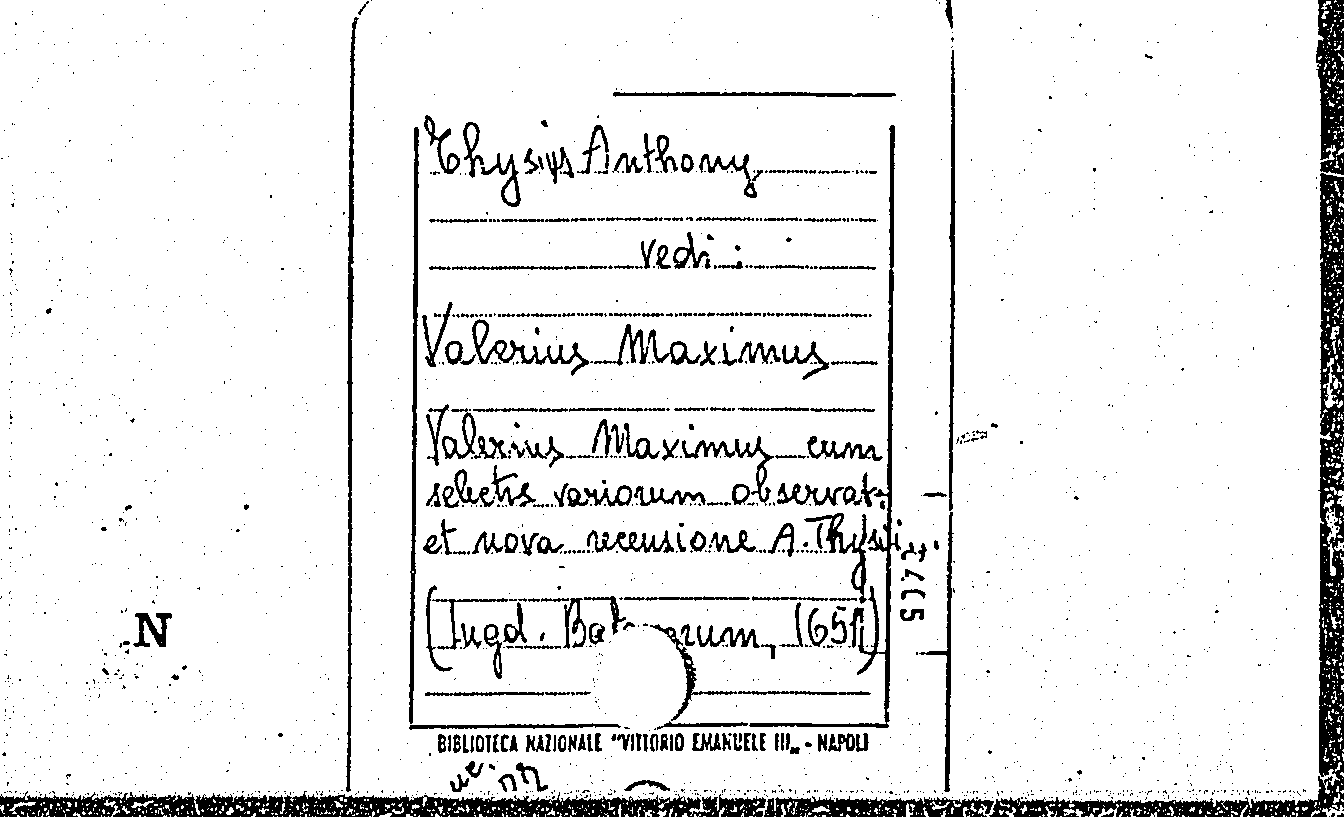 Thysius Anthony
vedi :
Valerius Maximus
Valerius Maximus cum
selectis variorum observat:
et nova recensione A. Thysii.
(Lugd. Batavorum,
N
BIBLIOTECA NAZIONALE "VITTORIO EMANUELE III„ - NAPOLI